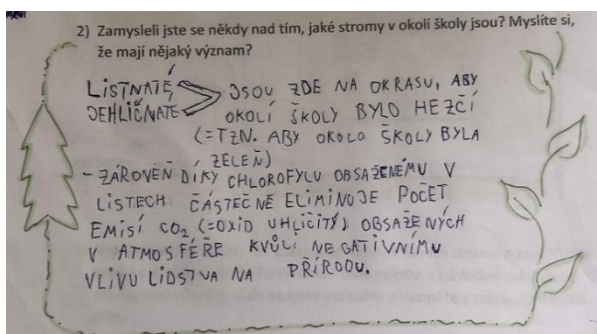 2) Zamysleli jste se někdy nad tím, jaké stromy v okolí školy jsou? Myslíte si,
že mají nějaký význam?
LISTNATÉ, JSOU ZDE NA OKRASU, ABY
JEHLIČNATÉ OKOLÍ ŠKOLY BYLO HEZČÍ
(=TZN. ABY OKOLO ŠKOLY BYLA
ZELEŇ)
- ZÁROVEŇ DÍKY CHLOROFYLU OBSAŽENÉMU V
LISTECH ČÁSTEČNĚ ELIMINUJE POČET
EMISÍ CO₂ (=OXID UHLIČITÝ) OBSAŽENÝCH
V ATMOSFÉŘE KVŮLI NEGATIVNÍMU
VLIVU LIDSTVA NA PŘÍRODU.